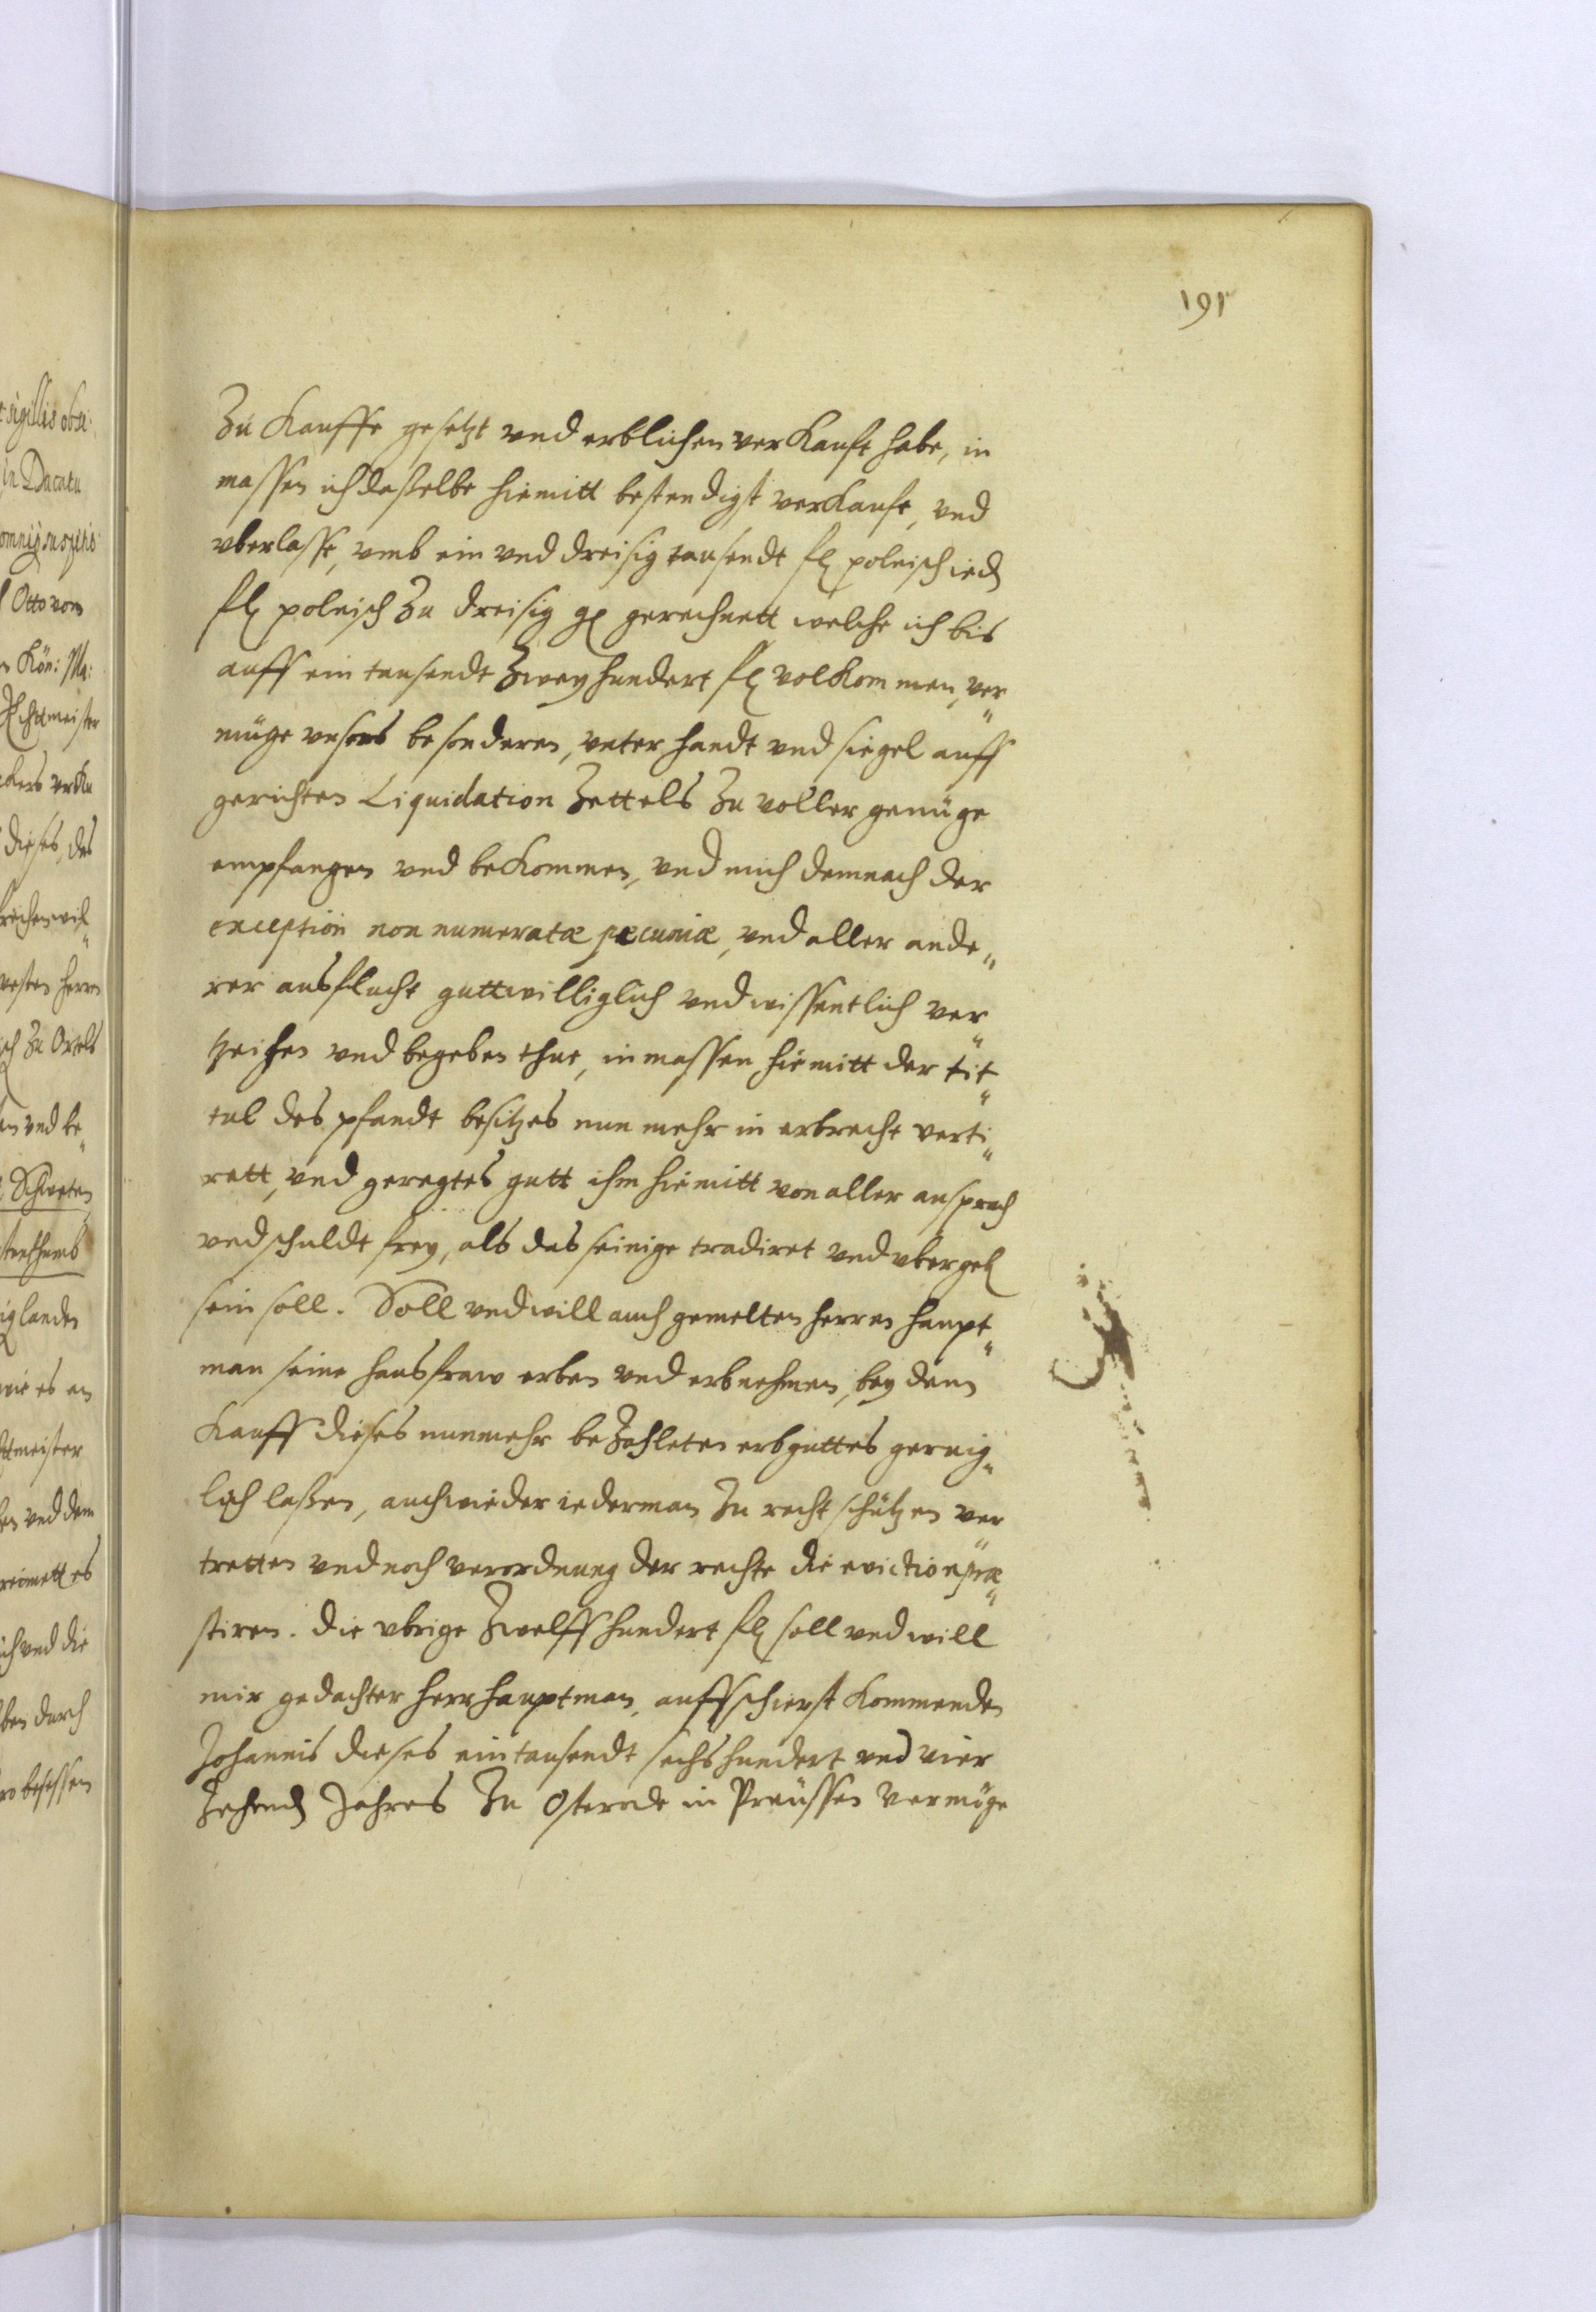 191
Zu Kauffe gesetzt vnd erblichen verKauft habe, in
massen ich daßelbe hiemitt bestendigst verKaufe, vnd
vberlasse, vmb ein vnd dreisig tausendt fl polnisch ied
fl polnisch Zu dreisig gl gerechnett welche ich bis
auff ein tausendt Zwey hundert fl volKommen, ver„
müge vnsers besonderen, vnter handt vnd siegel auff
gerichten Liquidation Zettels Zu voller genüge
empfangen vnd beKommen, vnd mich demnach der
exception non numeratæ pæcuniæ, vnd aller ande„
rer ausflucht guttwilliglich vnd wissentlich ver„
tzeihen vnd begeben thue, in massen hiemitt der tit„
tul des pfandt besitzes nun mehr in erbrecht verti„
rett, vnd geregtes gutt ihm hiemitt von aller ansprach
vnd schuldt frey, als das seinige tradiret vnd vbergeb
sein soll. Soll vnd will auch gemelten herren haupt„
man seine hausfraw erben vnd erbnehmen, bey dem
Kauff dieses nunmehr beZahleten erbguttes geruig„
lich laßen, auch wieder iederman Zu recht schützen ver„
tretten vnd nach verordnung der rechte die eviction præ„
stiren. die vbrige Zwelffhundert fl soll vnd will
mir gedachter herr hauptman, auff schierst Kommenden
Johannis dieses eintausendt sechshundert vnd vier
Zehend Jahres Zu Osterode in Preüssen vermöge
t sigillis obsi:
in Ducatu
Otto von
Kön: Ma:
dieses, des
vesten herrn
ich Zu Ortels
en vnd be„
wie es an
en vnd dem
ich vnd die
ben durch
ro besessen